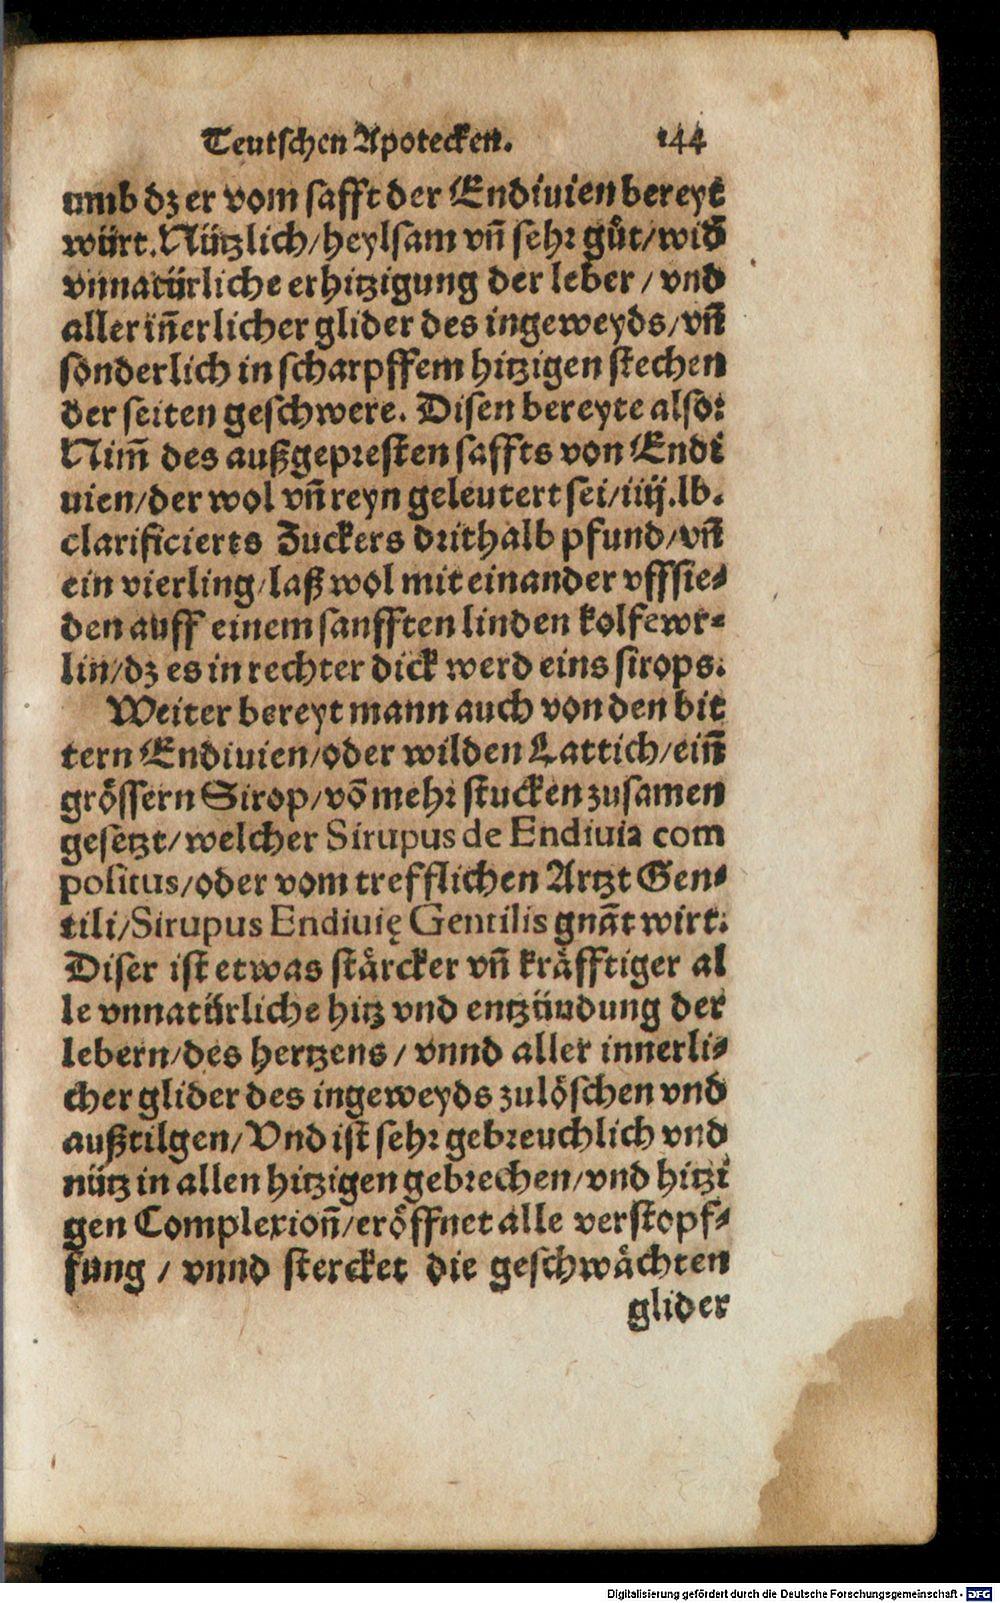 Teutschen Apotecken. 144
umb dz er vom safft der Endiuien bereyt
würt. Nützlich/heylsam vñ sehr gůt/wid̄
vnnatürliche erhitzigung der leber / vnd
aller iñerlicher glider des ingeweyds/vñ
sonderlich in scharpffem hitzigen stechen
der seiten geschwere. Disen bereyte also:
Nim̃ des außgepresten saffts von Endi
uien/der wol vñ reyn geleutert sei/iiij.lb.
clarificierts Zuckers drithalb pfund/vñ
ein vierling/laß wol mit einander vffsie-
den auff einem sanfften linden kolfewr-
lin/dz es in rechter dick werd eins sirops.
Weiter bereyt mann auch von den bit
tern Endiuien/oder wilden Lattich/eiñ
grössern Sirop/võ mehr stucken zusamen
gesetzt/welcher Sirupus de Endiuia com
positus/oder vom trefflichen Artzt Gen-
tili/Sirupus Endiuię Gentilis gnãt wirt.
Diser ist etwas stärcker vñ kräfftiger al
le vnnatürliche hitz vnd entzündung der
lebern/des hertzens / vnnd aller innerli-
cher glider des ingeweyds zulöschen vnd
außtilgen/Vnd ist sehr gebreuchlich vnd
nütz in allen hitzigen gebrechen/vnd hitzi
gen Complexioñ/eröffnet alle verstopf-
fung / vnnd stercket die geschwächten
glider
Digitalisierung gefördert durch die Deutsche Forschungsgemeinschaft - DFG